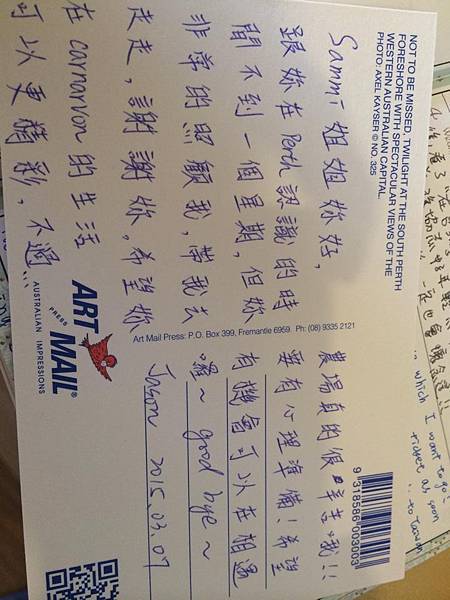 NOT TO BE MISSED, TWILIGHT AT THE SOUTH PERTH
FORESHORE WITH SPECTACULAR VIEWS OF THE
WESTERN AUSTRALIAN CAPITAL.
PHOTO: AXEL KAYSER © NO. 325
Sammi 姐姐妳好,
跟妳在 Perth 認識的時
間不到一個星期,但妳
非常的照顧我,帶我去
走走,謝謝妳 希望妳
在 carnarvon 的生活
可以更精彩,不過...
Art Mail Press: P.O. Box 399, Fremantle 6959. Ph: (08) 9335 2121
ART
MAIL®
PRESS
AUSTRALIAN IMPRESSIONS
農場真的很辛苦哦!!
要有心理準備!希望
有機會可以在相遇
囉~ good bye ~
Jason 2015.03.07
9 318586 003003
which I want to go!
ticket as soon
to Taiwan